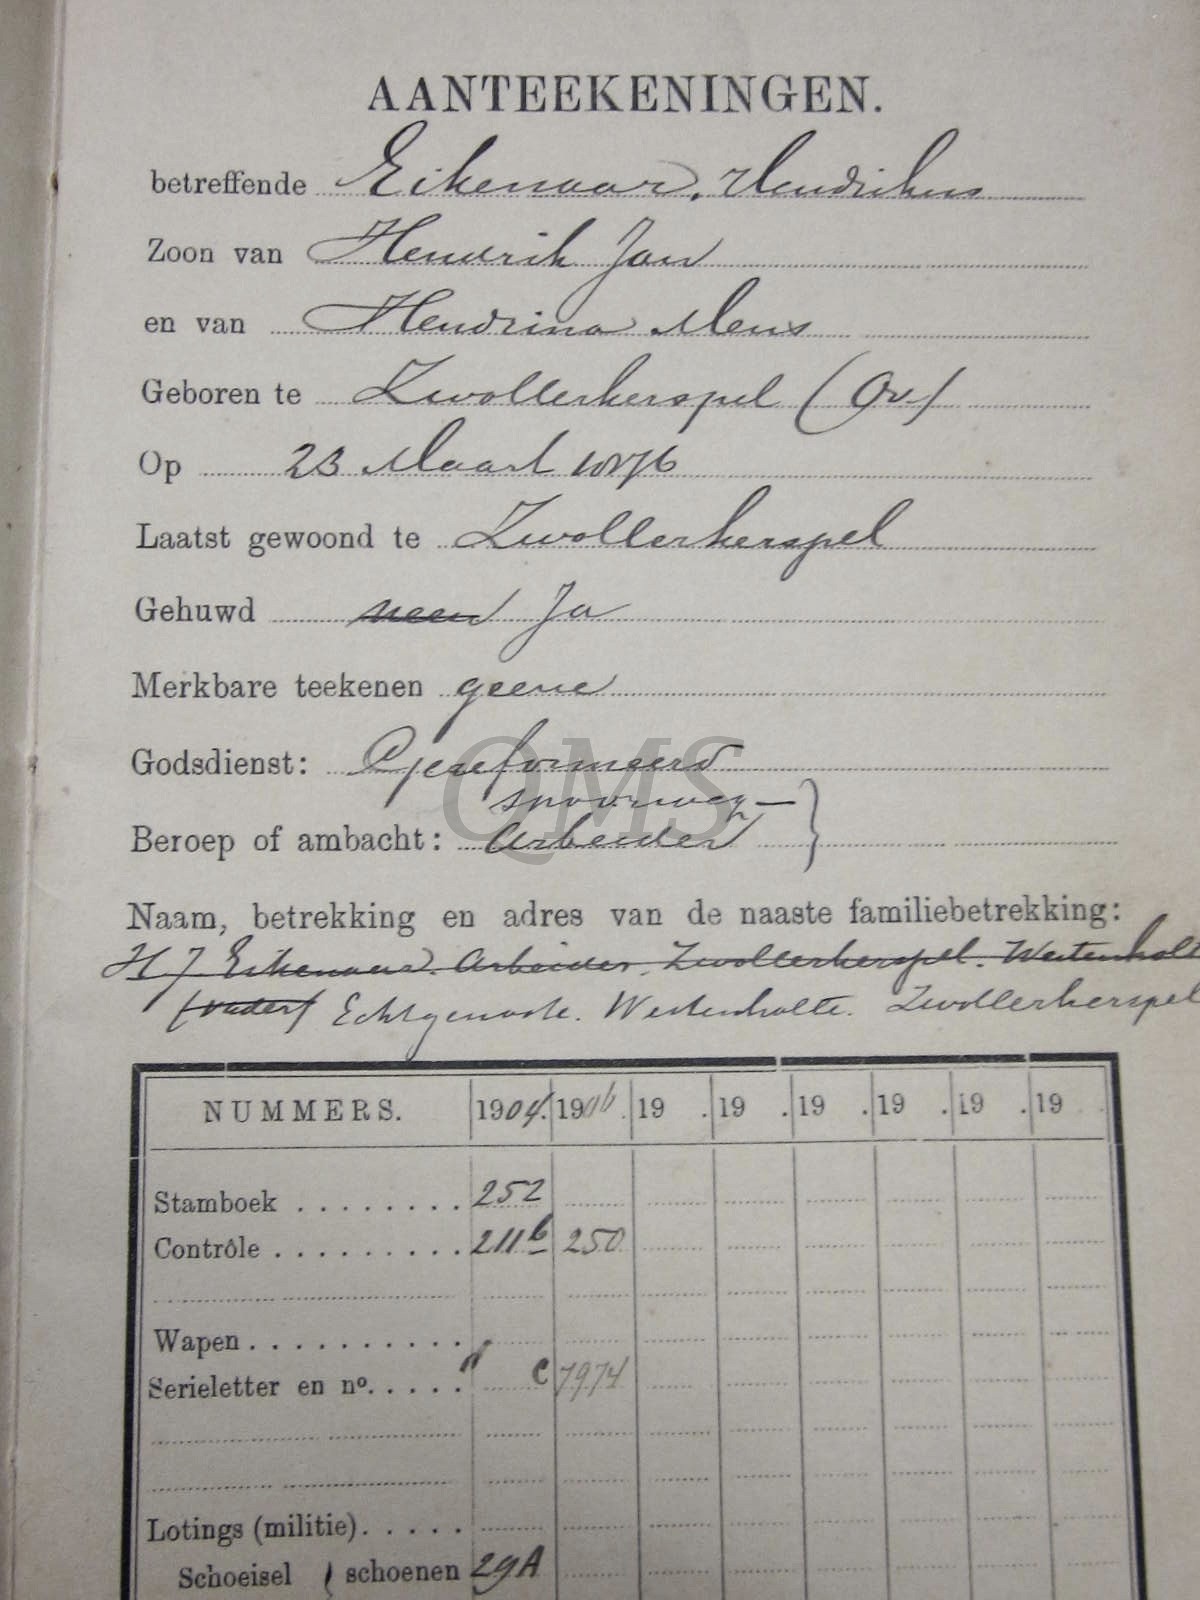 AANTEEKENINGEN.
betreffende Eikenaar, Hendrikus
Zoon van Hendrik Jan
en van Hendrina Mens
Geboren te Zwollerkerspel (Ov)
Op 23 Maart 1876
Laatst gewoond te Zwollerkerspel
Gehuwd neen Ja
Merkbare teekenen geene
Godsdienst: Gereformeerd
spoorweg-
Beroep of ambacht: Arbeider }
QMS
Naam, betrekking en adres van de naaste familiebetrekking:
H J Eikenaar. Arbeider. Zwollerkerspel. Westenholt
(vader) Echtgenoote. Westenholte. Zwollerkerspel
NUMMERS. 1904. 1906. 19 . 19 . 19 . 19 . 19 . 19
Stamboek . . . . . . . . 252
Contrôle . . . . . . . . . 211b 250
Wapen . . . . . . . . . .
Serieletter en no. . . . . C 7974
Lotings (militie) . . . . .
Schoeisel { schoenen 29A